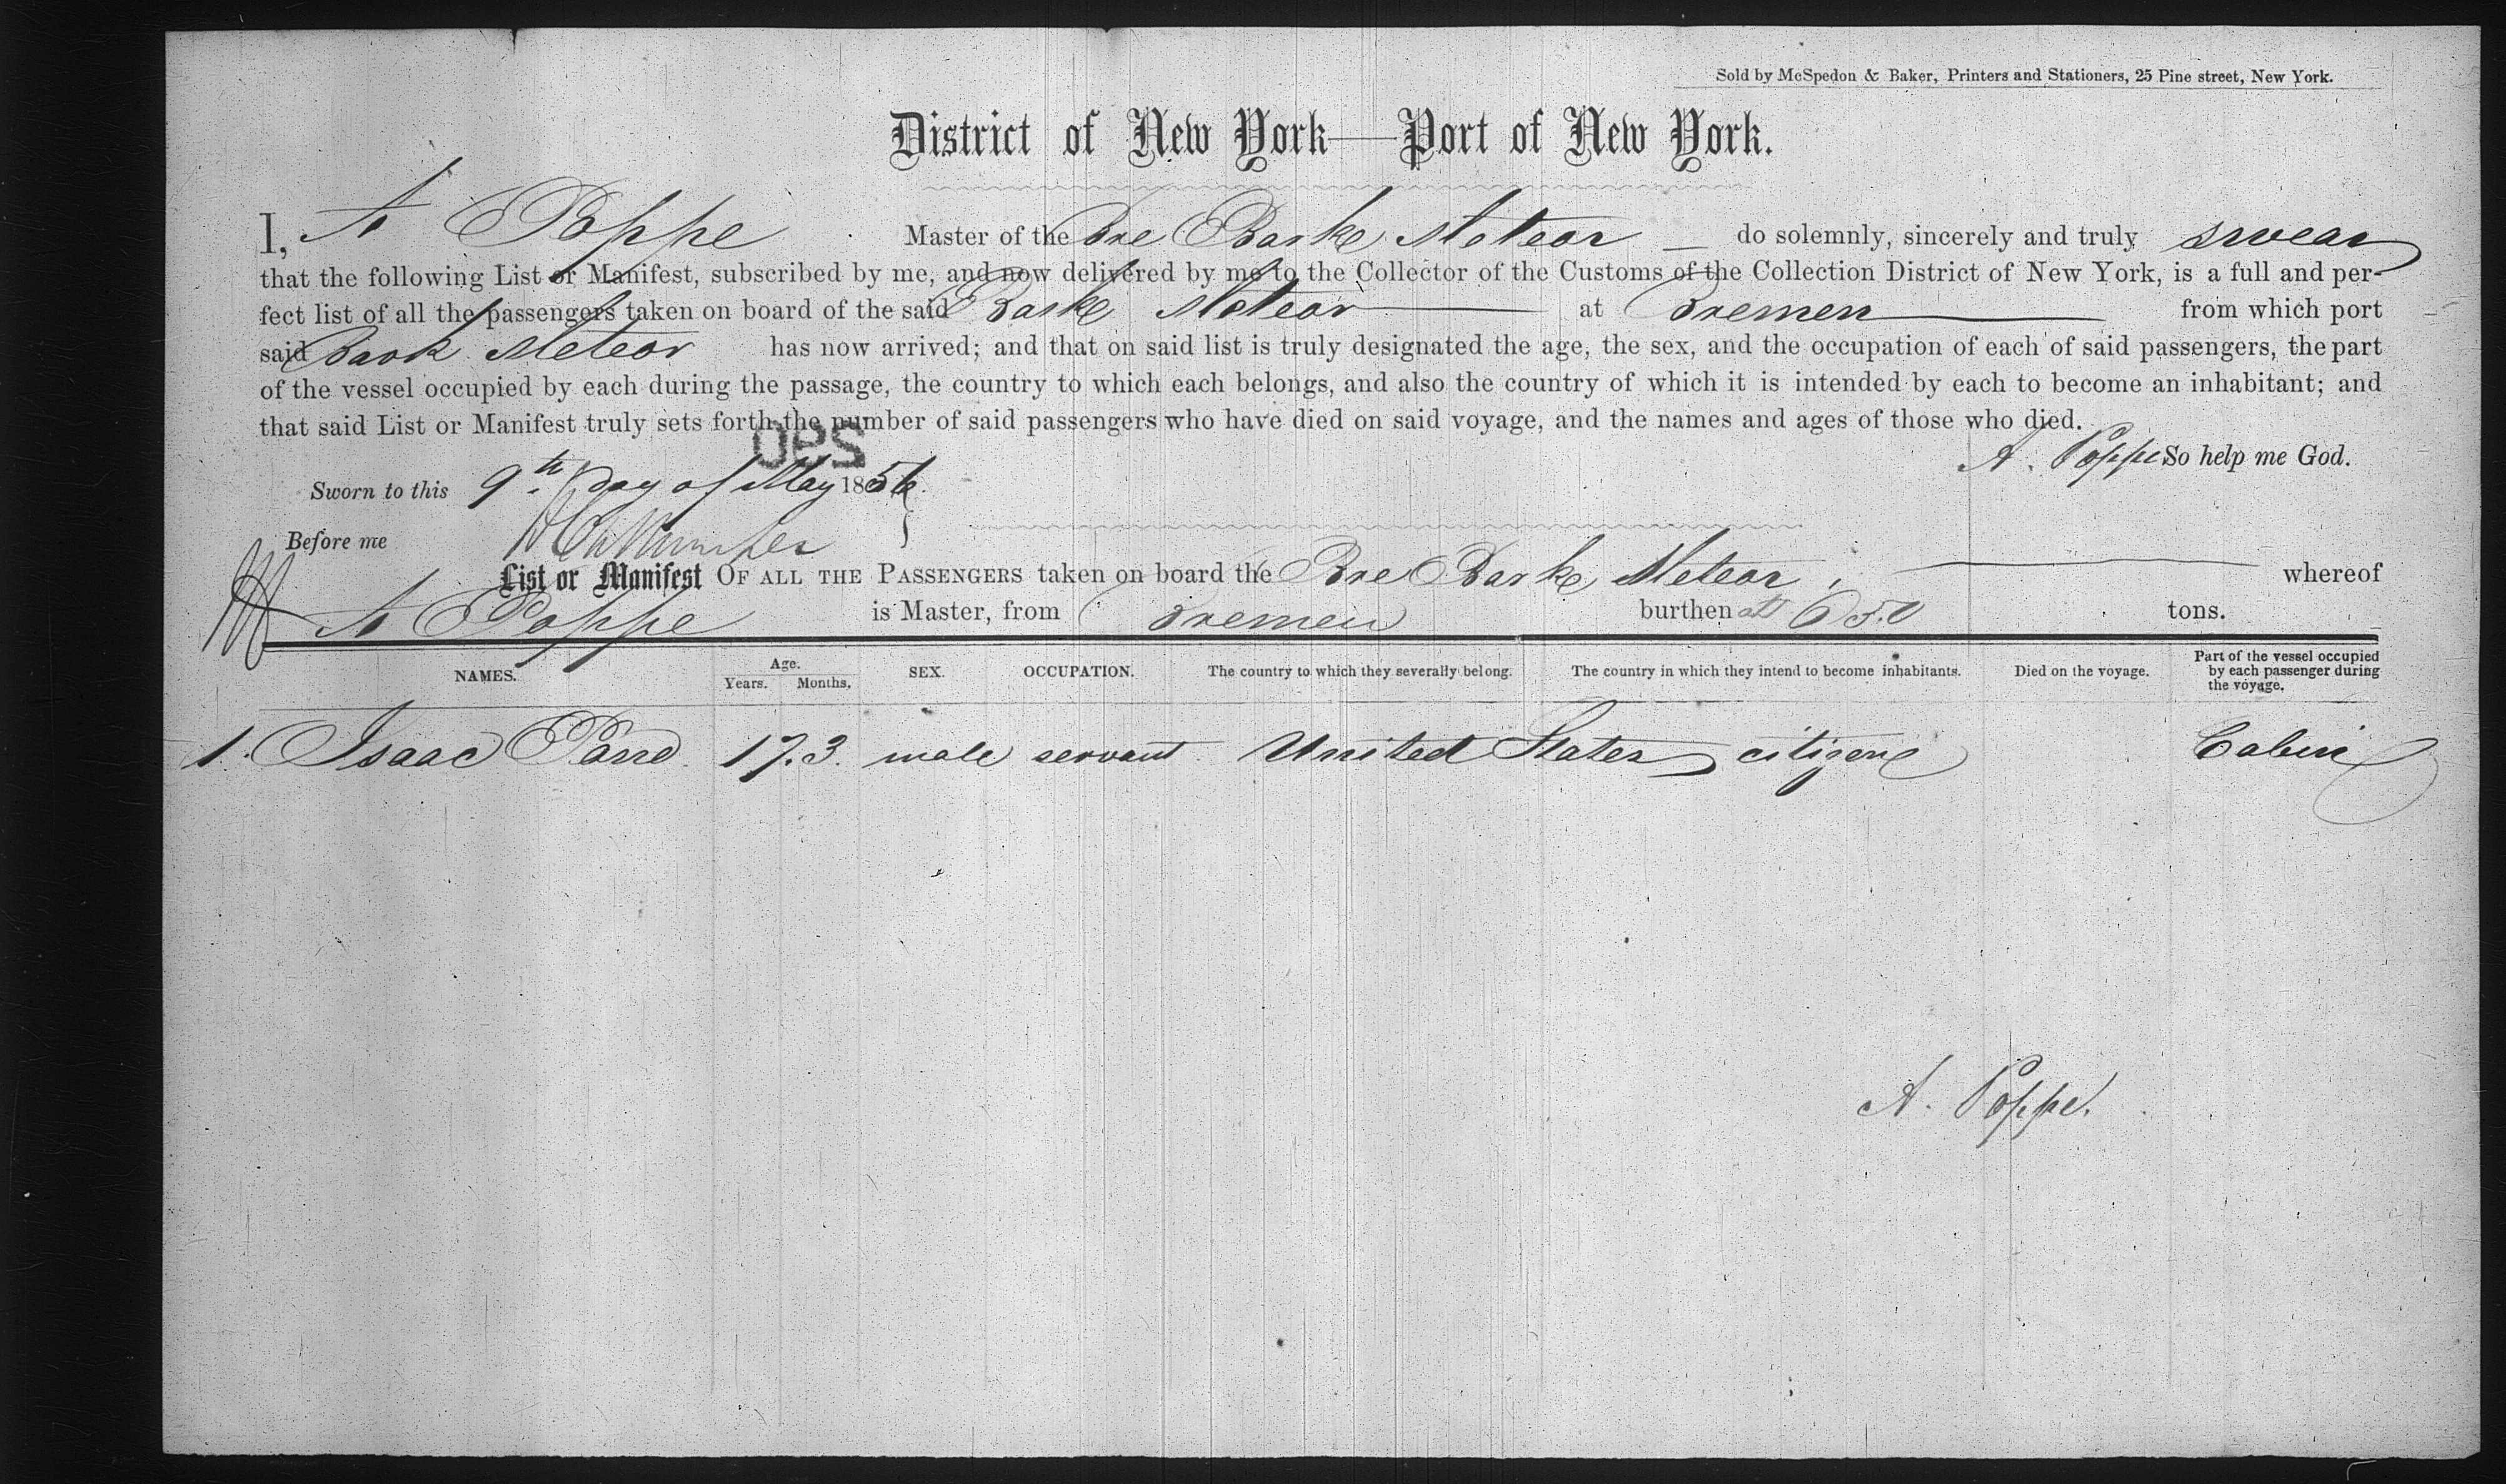 Sold by McSpedon & Baker, Printers and Stationers, 25 Pine street, New York.
District of New York—Port of New York.
I, A Poppe Master of the Bre Barke Meteor — do solemnly, sincerely and truly swear
that the following List or Manifest, subscribed by me, and now delivered by me to the Collector of the Customs of the Collection District of New York, is a full and per-
fect list of all the passengers taken on board of the said Barke Meteor at Bremen from which port
said Bark Meteor has now arrived; and that on said list is truly designated the age, the sex, and the occupation of each of said passengers, the part
of the vessel occupied by each during the passage, the country to which each belongs, and also the country of which it is intended by each to become an inhabitant; and
that said List or Manifest truly sets forth the number of said passengers who have died on said voyage, and the names and ages of those who died.
A. Poppe So help me God.
Sworn to this 9th Day of May 1856
Before me
List or Manifest OF ALL THE PASSENGERS taken on board the Bre Barke Meteor, whereof
A Poppe is Master, from Bremen burthen 650 tons.
NAMES. Age. Years. Months. SEX. OCCUPATION. The country to which they severally belong. The country in which they intend to become inhabitants. Died on the voyage. Part of the vessel occupied by each passenger during the voyage.
1. Isaac 17. 3. male servant United States citizen Cabin
A. Poppe.